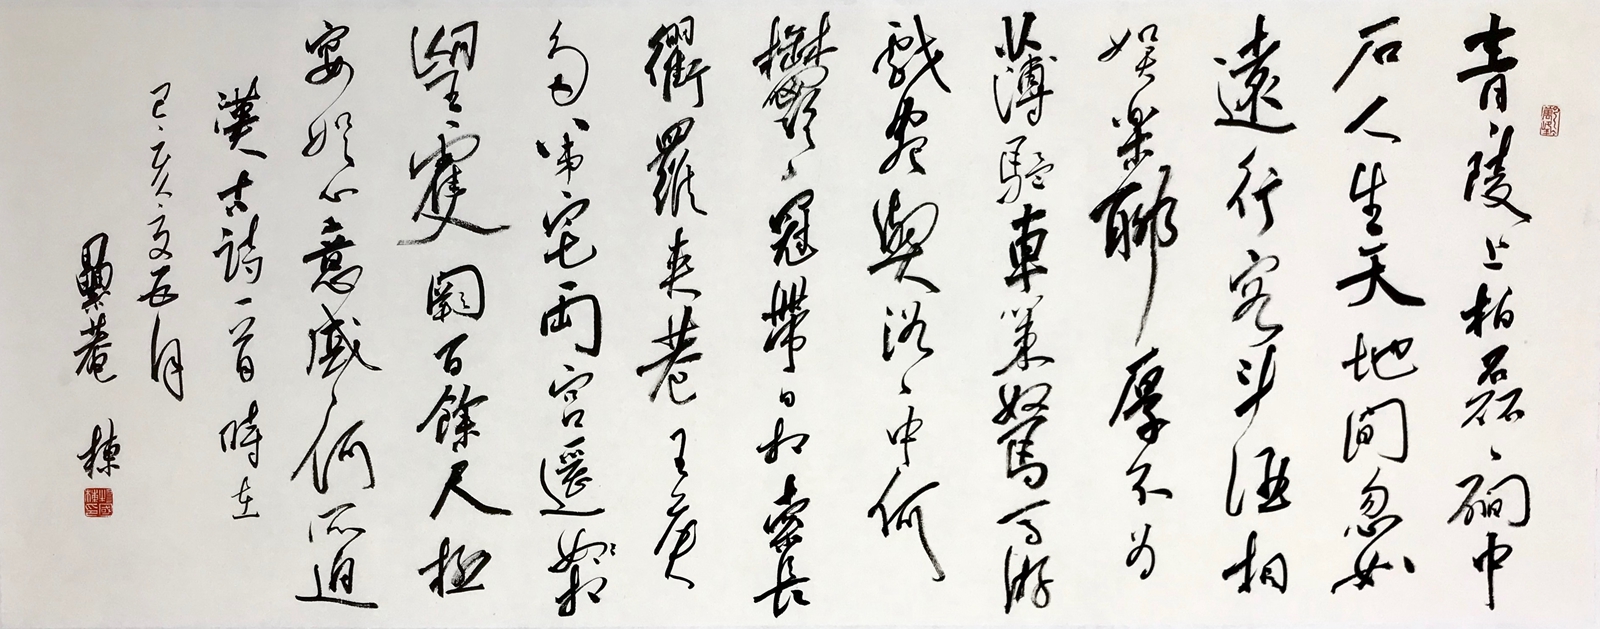 青〻陵上柏磊〻磵中
石人生天地間忽如
遠行客斗酒相
娛樂聊厚不為
薄驅車策駑馬游
戲宛與洛〻中何
鬱〻冠帶自相索長
衢羅夾巷王侯
多第宅兩宮遙相
望雙闕百餘尺極
宴娛心意戚〻何所迫
漢古詩一首時在
己亥夏五月
菴 棟